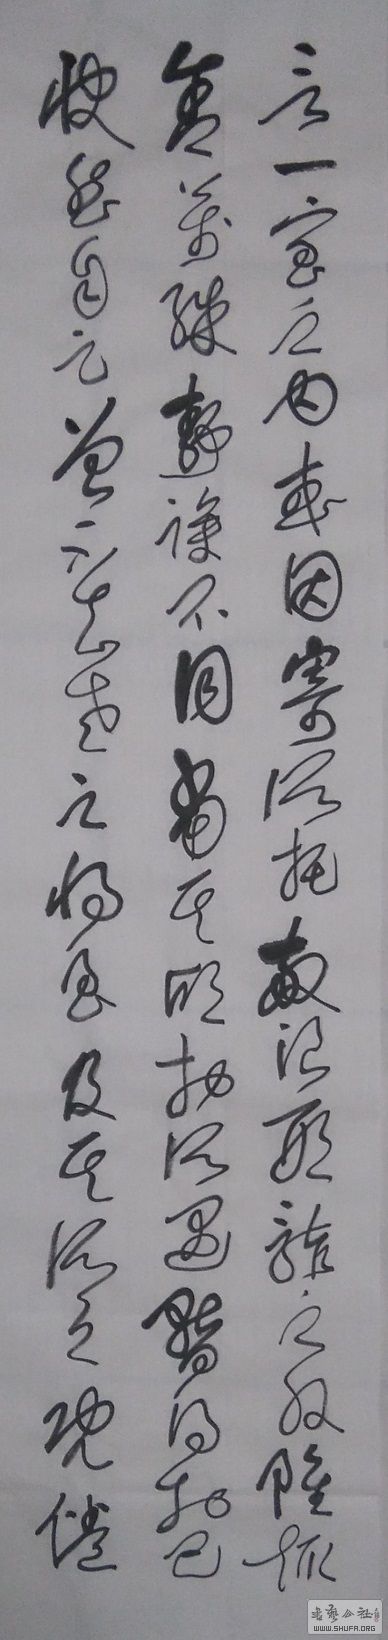 言一室之内或因寄所托放浪形骸之外雖趣
舍萬殊靜躁不同當其欣於所遇暫得於己
快然自足曾不知老之將至及其所之既倦
書藝公社
WWW.SHUFA.ORG